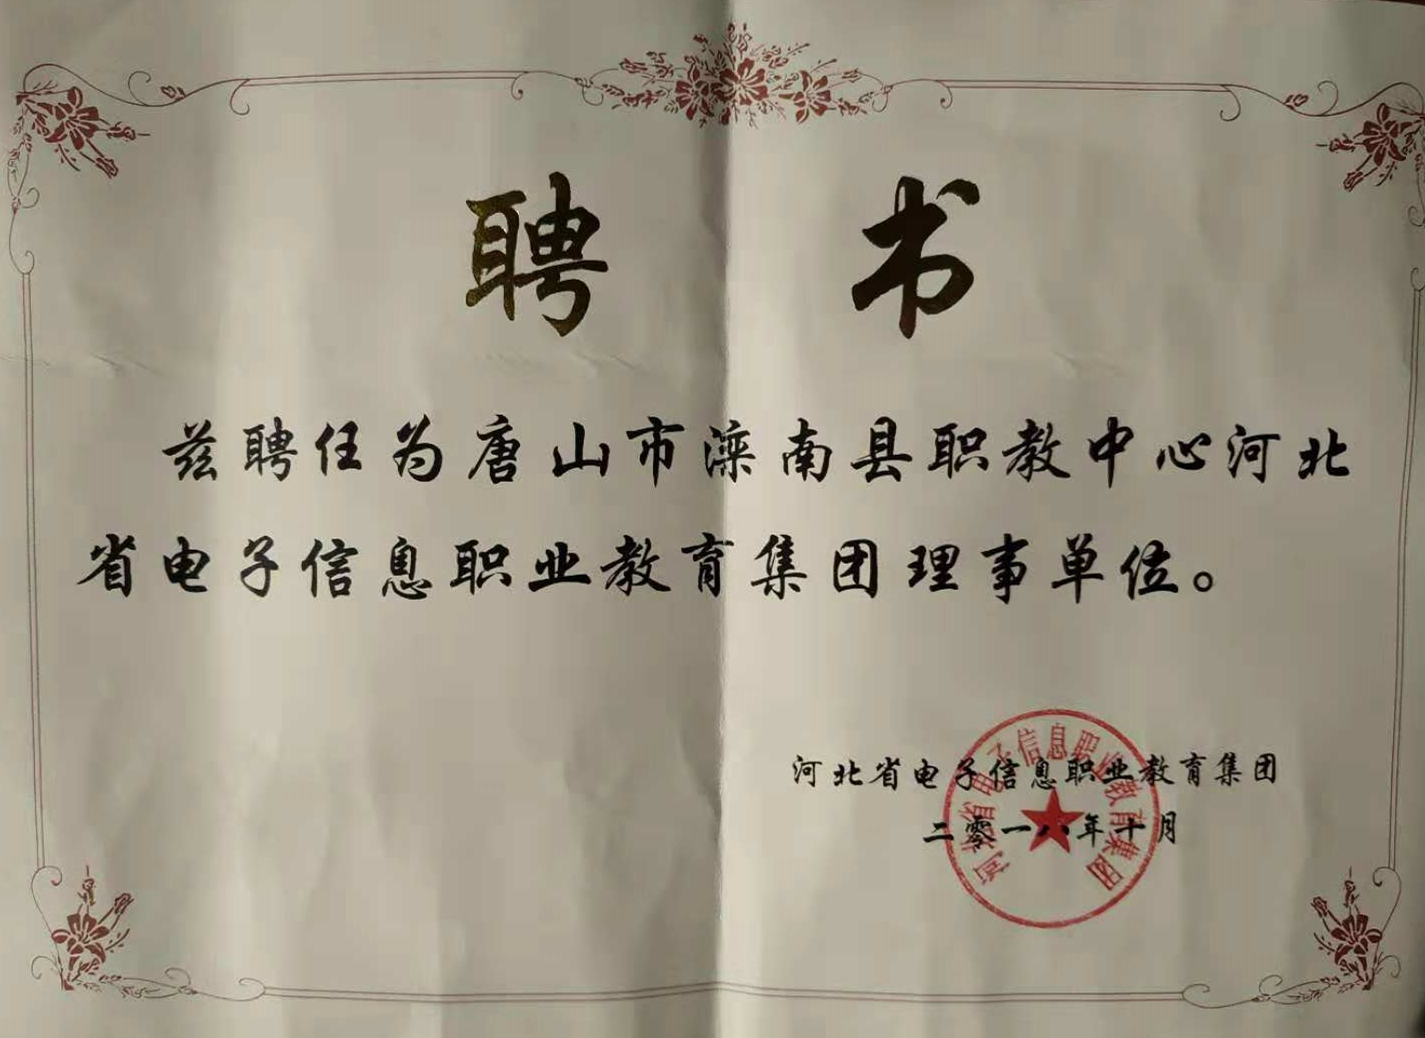 聘书
兹聘任为唐山市滦南县职教中心河北
省电子信息职业教育集团理事单位。
河北省电子信息职业教育集团
二零一八年十月
河北省电子信息职业教育集团